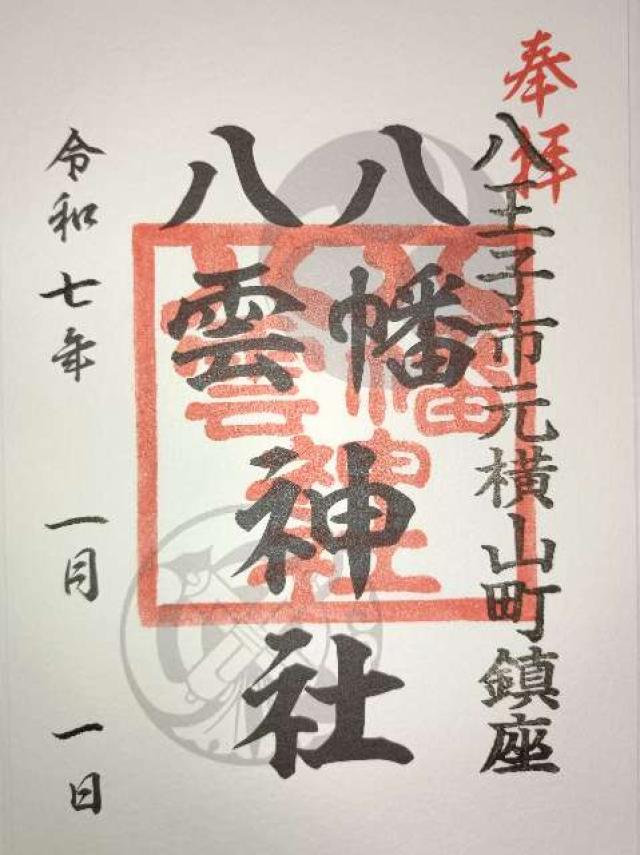 奉拝
八王子市元横山町鎮座
八幡
八雲
神社
令和七年 一月 一日
八幡
八雲
神社